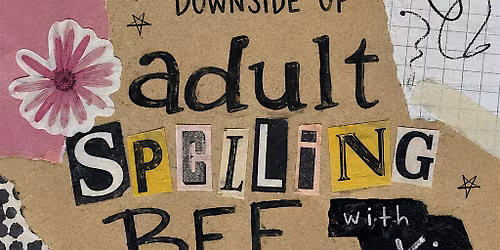 DOWNSIDE UP
adult
SPELLiNG
BEE
with